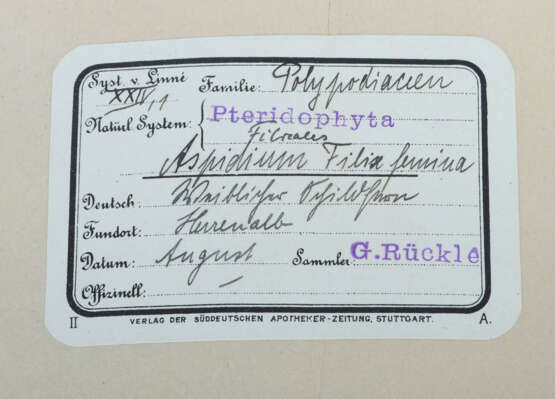 Syst. v. Linné XXIV,1 Familie: Polypodiaceen
Natürl System: Pteridophyta
Filicales
Aspidium Filix femina
Deutsch: Weiblicher Schildfarn
Fundort: Herrenalb
Datum: August Sammler: G.Rückle
Offizinell:
II VERLAG DER SÜDDEUTSCHEN APOTHEKER-ZEITUNG, STUTTGART. A.